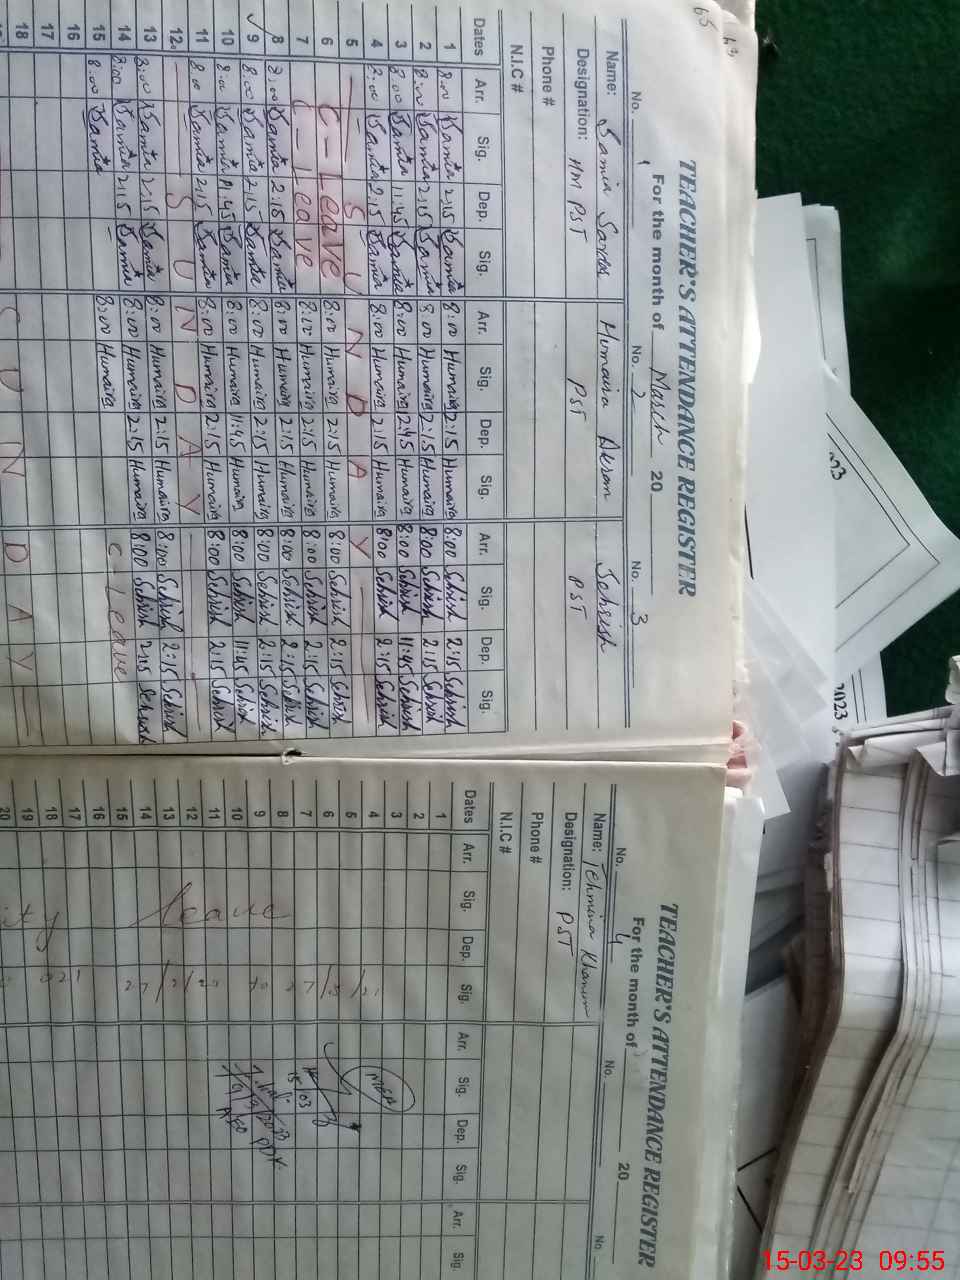 65
TEACHER'S ATTENDANCE REGISTER
For the month of March 20
No. 1 No. 2 No. 3
Name: Samia Humaira Sehrish
Designation: HM PST PST PST
Phone #
N.I.C #
Dates Arr. Sig. Dep. Sig. Arr. Sig. Dep. Sig. Arr. Sig. Dep. Sig.
1 8:00 Samia 2:15 Samia 8:00 Humaira 2:15 Humaira 8:00 Sehrish 2:15 Sehrish
2 8:00 Samia 2:15 Samia 8:00 Humaira 2:15 Humaira 8:00 Sehrish 2:15 Sehrish
3 8:00 Samia 11:45 Samia 8:00 Humaira Humaira 8:00 Sehrish 11:45 Sehrish
4 8:00 Samia 2:15 Samia 8:00 Humaira 2:15 Humaira 8:00 Sehrish 2:15 Sehrish
5 S U N D A Y
6 C-Leave 8:00 Humaira 2:15 Humaira 8:00 Sehrish 2:15 Sehrish
7 C-Leave 8:00 Humaira 2:15 Humaira 8:00 Sehrish 2:15 Sehrish
8 8:00 Samia 2:15 Samia 8:00 Humaira 2:15 Humaira 8:00 Sehrish 2:15 Sehrish
9 8:00 Samia 2:15 Samia 8:00 Humaira 2:15 Humaira 8:00 Sehrish 2:15 Sehrish
10 8:00 Samia Samia 8:00 Humaira 11:45 Humaira 8:00 Sehrish 11:45 Sehrish
11 8:00 Samia 2:15 Samia 8:00 Humaira 2:15 Humaira 8:00 Sehrish 2:15 Sehrish
12 S U N D A Y
13 8:00 Samia 2:15 Samia 8:00 Humaira 2:15 Humaira 8:00 Sehrish 2:15 Sehrish
14 8:00 Samia 2:15 Samia 8:00 Humaira 2:15 Humaira 8:00 Sehrish 2:15 Sehrish
15 8:00 Samia 8:00 Humaira C-Leave
16
17
18
U N D A Y
TEACHER'S ATTENDANCE REGISTER
For the month of 20
No. 4 No. No.
Name: Tehmina Khanum
Designation: PST
Phone #
N.I.C #
Dates Arr. Sig. Dep. Sig. Arr. Sig. Dep. Sig. Arr. Sig.
1
2
3
4
5
6
7
8
9
10
11
12
13
14
15
16
17
18
19
20
leave
15/03
2023
15-03-23 09:55